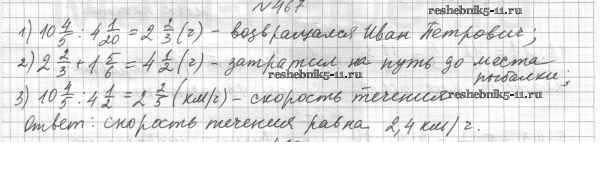 №467
reshebnik5-11.ru
1) 10 4/5 : 4 1/20 = 2 2/3 (г) - возвращался Иван Петрович;
2) 2 2/3 + 1 5/6 = 4 1/2 (г) - затратил на путь до места
рыбалки;
reshebnik5-11.ru
3) 10 4/5 : 4 1/2 = 2 2/5 (км/г) - скорость течения
reshebnik5-11.ru
Ответ: скорость течения равна 2,4 км/г.